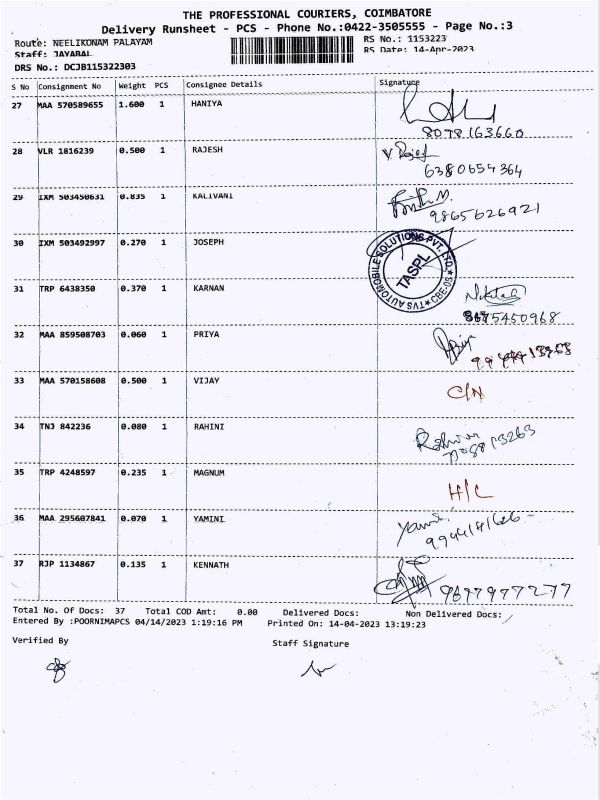 THE PROFESSIONAL COURIERS, COIMBATORE
Delivery Runsheet - PCS - Phone No.:0422-3505555 - Page No.:3
Route: NEELIKONAM PALAYAM RS No.: 1153223
Staff: JAYABAL RS Date: 14-Apr-2023
DRS No.: DCJB115322303
S No Consignment No Weight PCS Consignee Details Signature
27 MAA 570589655 1.600 1 HANIYA
8078163660
28 VLR 1816239 0.500 1 RAJESH V Rajesh
6380654364
29 IXM 503450631 0.835 1 KALIVANI
9865626921
30 IXM 503492997 0.270 1 JOSEPH
TVS AUTOMOBILE SOLUTIONS PVT. LTD. ★ CBE-05 ★
TASPL
31 TRP 6438350 0.370 1 KARNAN
5450968
32 MAA 859508703 0.060 1 PRIYA Priya
33 MAA 570158608 0.500 1 VIJAY C/N
34 TNJ 842236 0.080 1 RAHINI Rahini
35 TRP 4248597 0.235 1 MAGNUM H/C
36 MAA 295607841 0.070 1 YAMINI Yamini
37 RJP 1134867 0.135 1 KENNATH 9677977277
Total No. Of Docs: 37 Total COD Amt: 0.00 Delivered Docs: Non Delivered Docs:
Entered By :POORNIMAPCS 04/14/2023 1:19:16 PM Printed On: 14-04-2023 13:19:23
Verified By Staff Signature